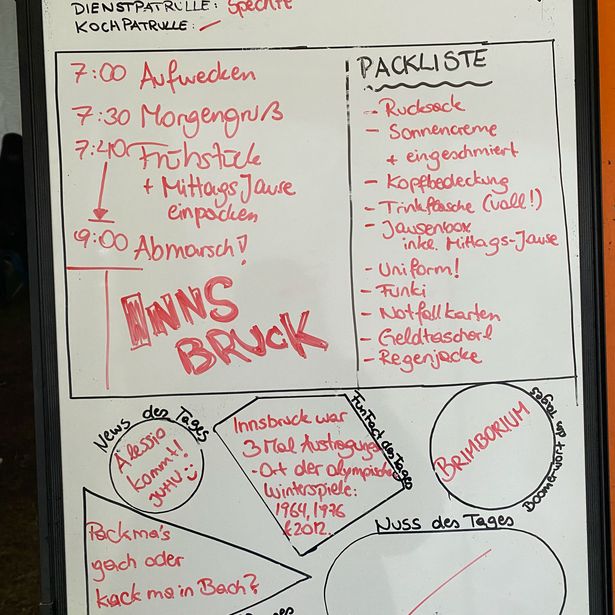 DIENSTPATRULLE: Spechte
KOCHPATRULLE:
7:00 Aufwecken
7:30 Morgengruß
7:40 Frühstück
+ Mittags Jause
einpacken
9:00 Abmarsch!
INNS
BRUCK
PACKLISTE
- Rucksack
- Sonnencreme
+ eingeschmiert
- Kopfbedeckung
- Trinkflasche (voll!)
- Jausenbox
inkl. Mittags-Jause
- Uniform!
- Funki
- Notfallkarten
- Geldtascherl
- Regenjacke
News des Tages
Alessio
kommt!
JUHU
FunFact des Tages
Innsbruck war
3 Mal Austragungs
-Ort der olympischen
Winterspiele:
1964, 1976
& 2012.
BRIMBORIUM
Boomer-wort des Tages
Packma's
gach oder
kack ma in Bach?
Nuss des Tages